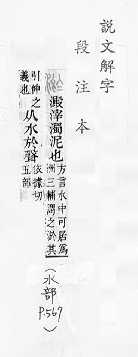 說文解字
段注本
淤
澱滓濁泥也方言水中可居爲洲三輔謂之淤其
引伸之義也从水於聲依據切五部
(水部 P.567)